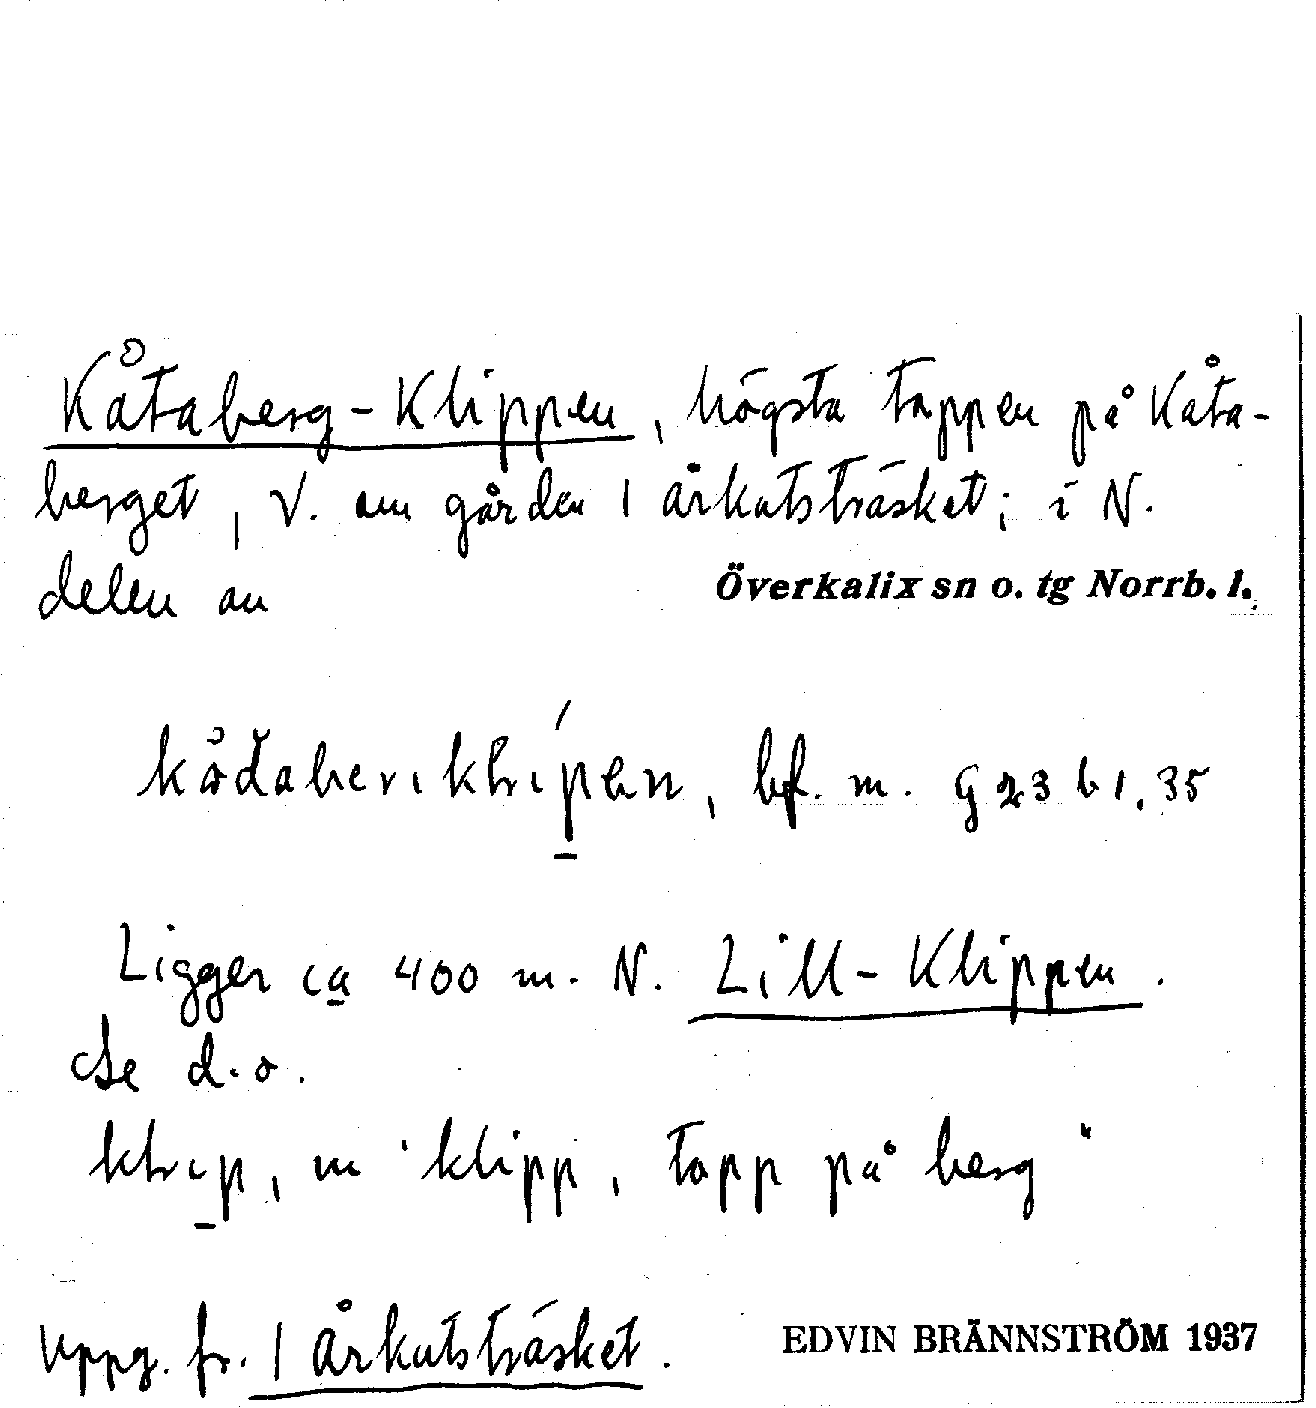 Kåtaberg-Klippen, högsta toppen på Kåta-
berget, V. om gården 1 Årkatsträsket; i N.
delen av Överkalix sn o. tg Norrb. l.
bf. m. G 23 b 1, 35
Ligger ca 400 m. N. Lill-Klippen.
Se d.o.
m "klipp, topp på berg"
Uppg. fr. 1 Årkatsträsket. EDVIN BRÄNNSTRÖM 1937